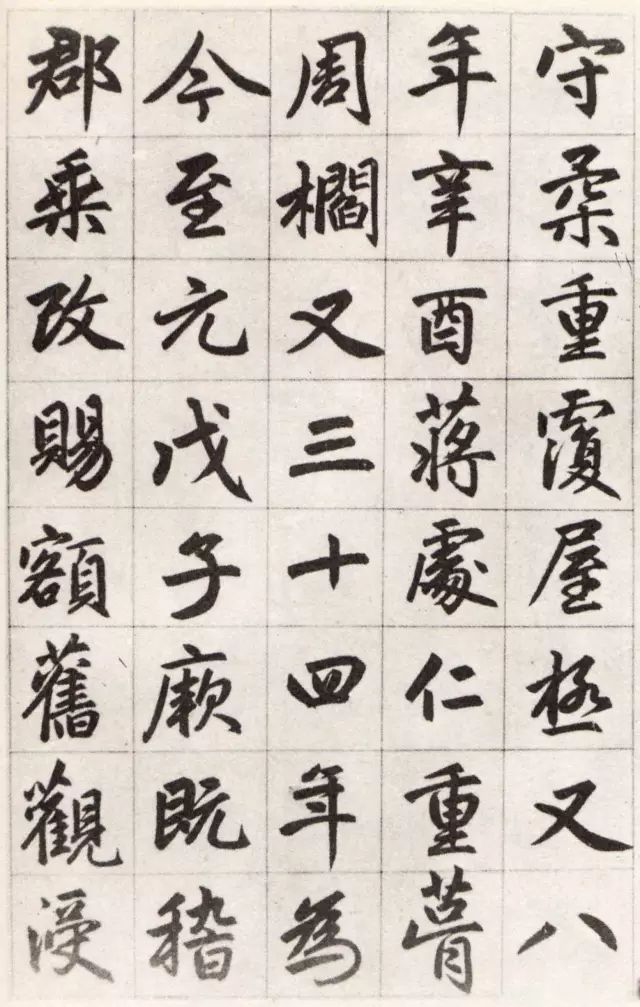 守柔重霞屋極又八
年辛酉蔣處仁重甍
周櫩又三十四年為
今至元戊子廟既稽
郡乘改賜額舊觀浸